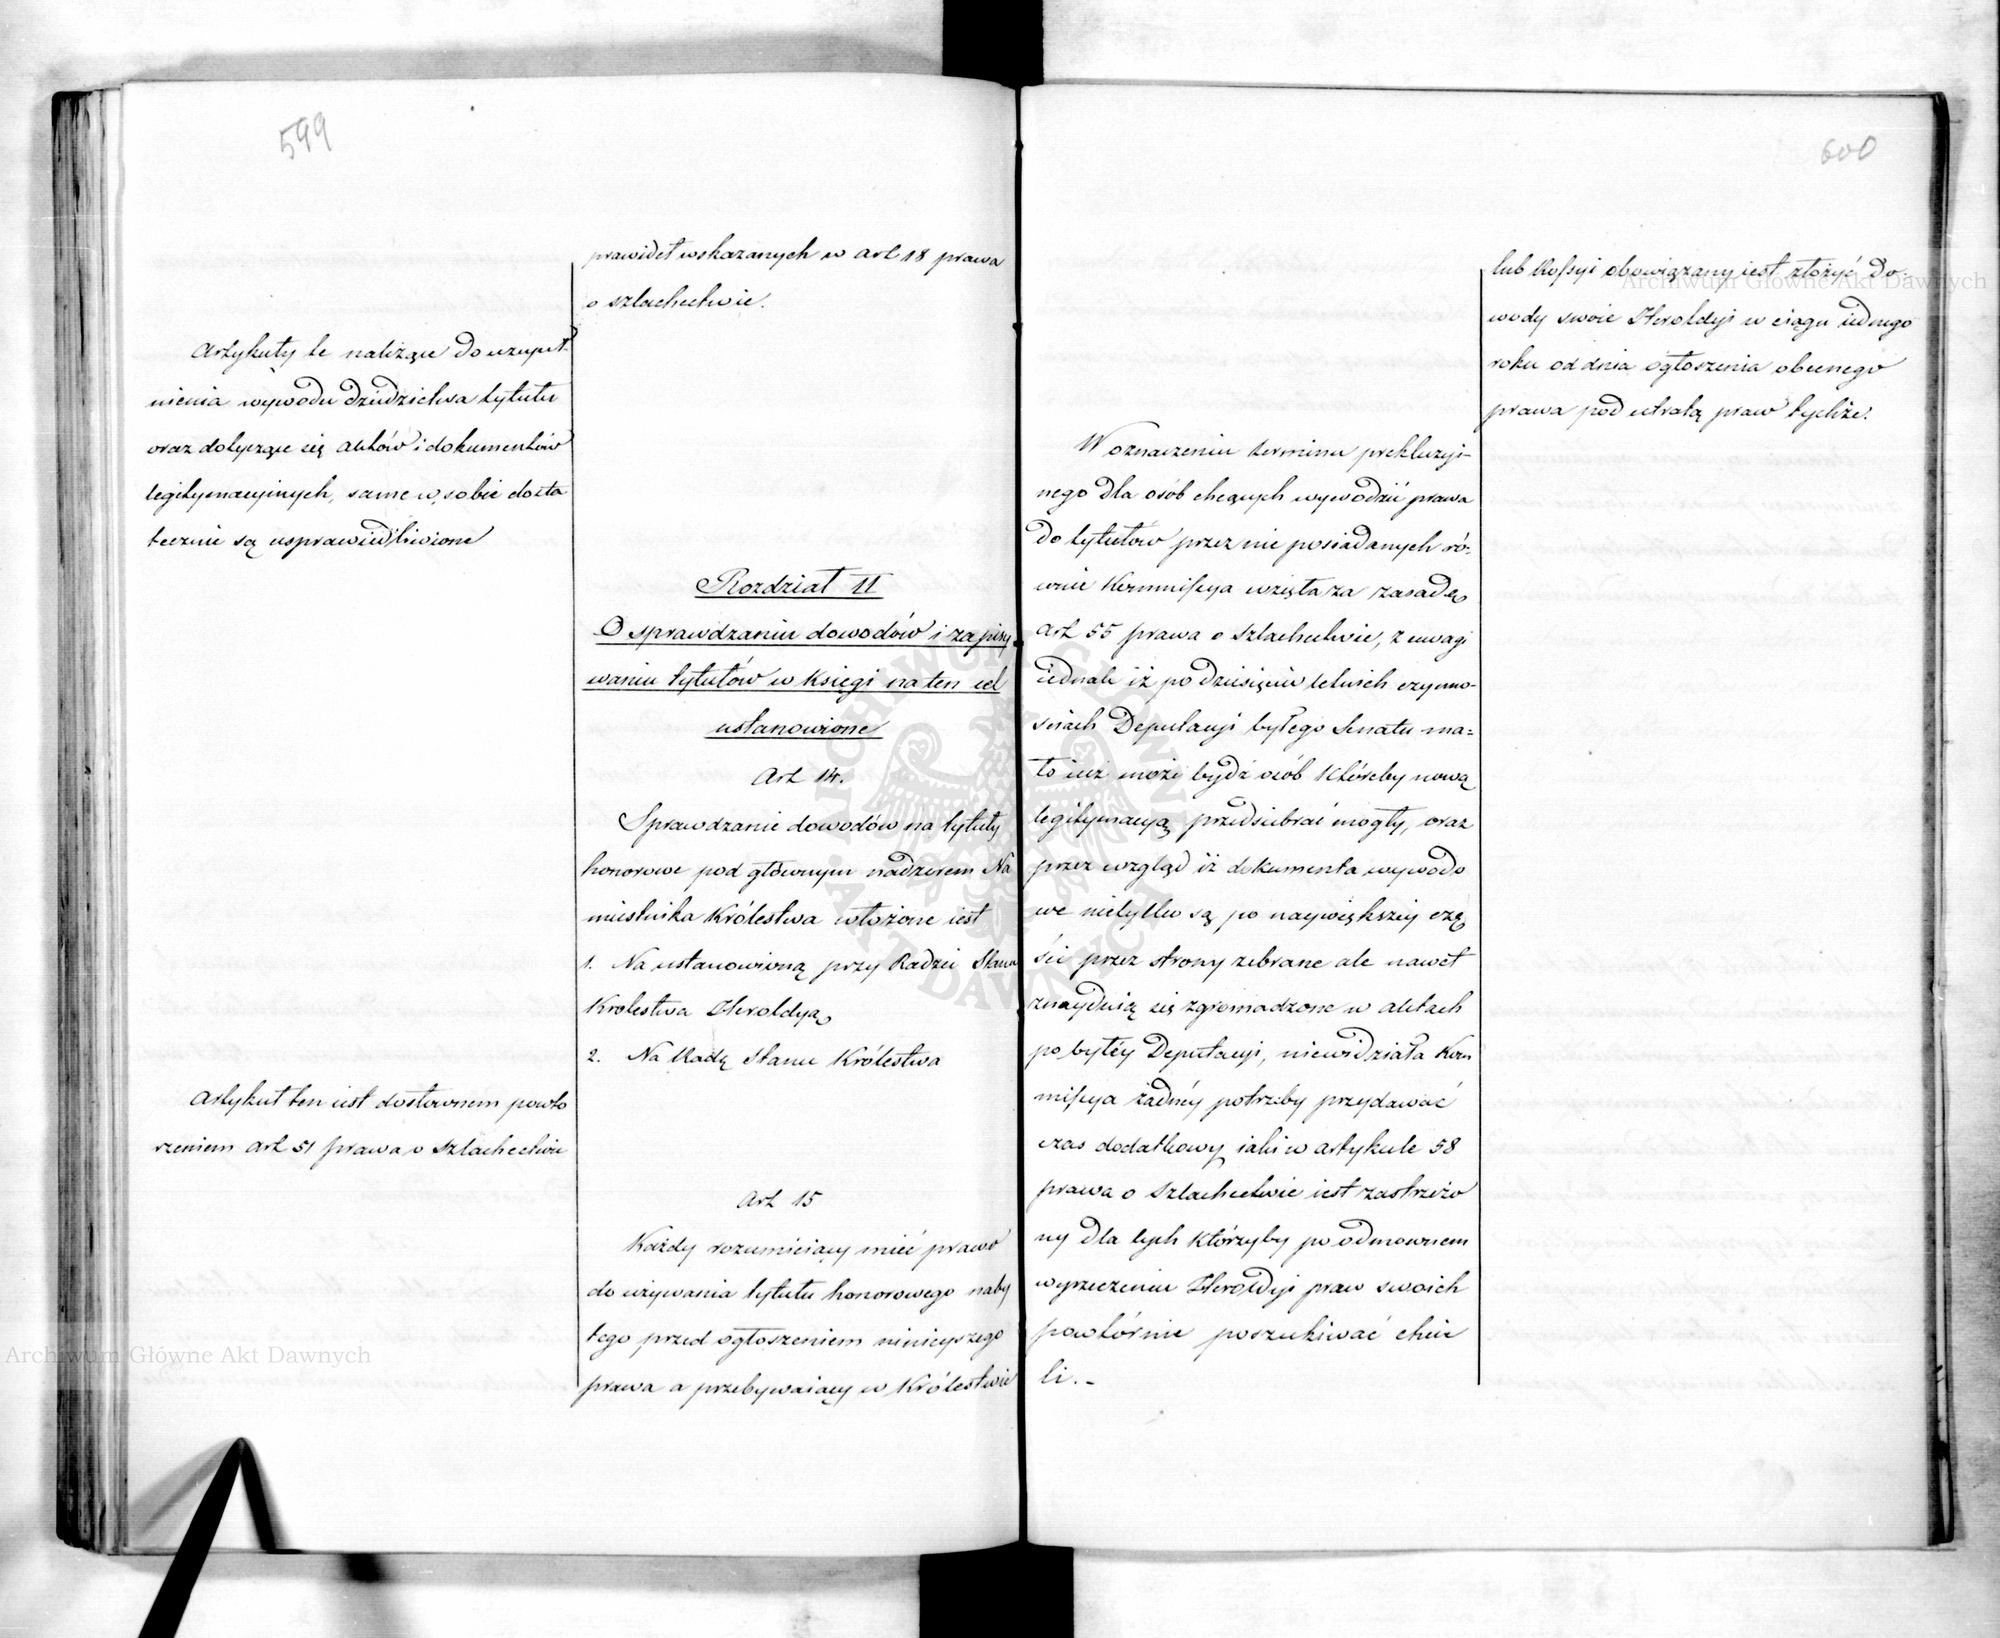 599
prawideł wskazanych w art 18 prawa
o szlachectwie.
Artykuły te należące do uzupeł-
nienia wywodu dziedzictwa tytułu
oraz dotyczące się aktów i dokumentów
legitymacyinych, same w sobie dosta
tecznie są usprawiedliwione
Rozdział II
O sprawdzaniu dowodów i zapisy
waniu tytułów w księgi na ten cel
ustanowione
Art 14.
Sprawdzanie dowodów na tytuły
honorowe pod głównym nadzorem Na
miestnika Królestwa włożone iest
1. Na ustanowioną przy Radzie Stanu
Krolestwa Heroldyą
2. Na Radę Stanu Królestwa
Artykuł ten iest dosłownem powtó
rzeniem art 51 prawa o Szlachectwie
Art 15
Każdy rozumieiący mieć prawo
do używania tytułu honorowego naby
tego przed ogłoszeniem ninieyszego
prawa a przebywaiący w Królestwie
600
lub Rossyi obowiązany iest złożyć do-
wody swoie Heroldyi w ciągu iednego
roku od dnia ogłoszenia obecnego
prawa pod utratą praw tychże.
W oznaczeniu terminu prekluzyi-
nego dla osób chcących wywodzić prawa
do tytułów przez nie posiadanych ró-
wnie Kommissya wzięła za zasadę
art 55 prawa o Szlachectwie, z uwagi
iednak iż po dziesięciu letnich czynno-
ściach Deputacyi byłego Senatu ma=
ło iuż może bydź osób któreby nową
legitymacyą przedsiebrać mogły, oraz
przez wzgląd iż dokumenta wywodo
we nietylko są po naywiększey czę
ści przez strony zebrane ale nawet
znayduią się zgromadzone w aktach
po byłéy Deputacyi, niewidziała Kom
missya żadnéy potrzeby przydawać
czas dodatkowy iaki w artykule 58
prawa o Szlachectwie iest zastrzeżo
ny dla tych którzyby po odmownem
wyrzeczeniu Heroldyi praw swoich
powtórnie poszukiwać chcie
li.-
Archiwum Główne Akt Dawnych
Archiwum Główne Akt Dawnych
ARCHIWUM GŁÓWNE AKT DAWNYCH